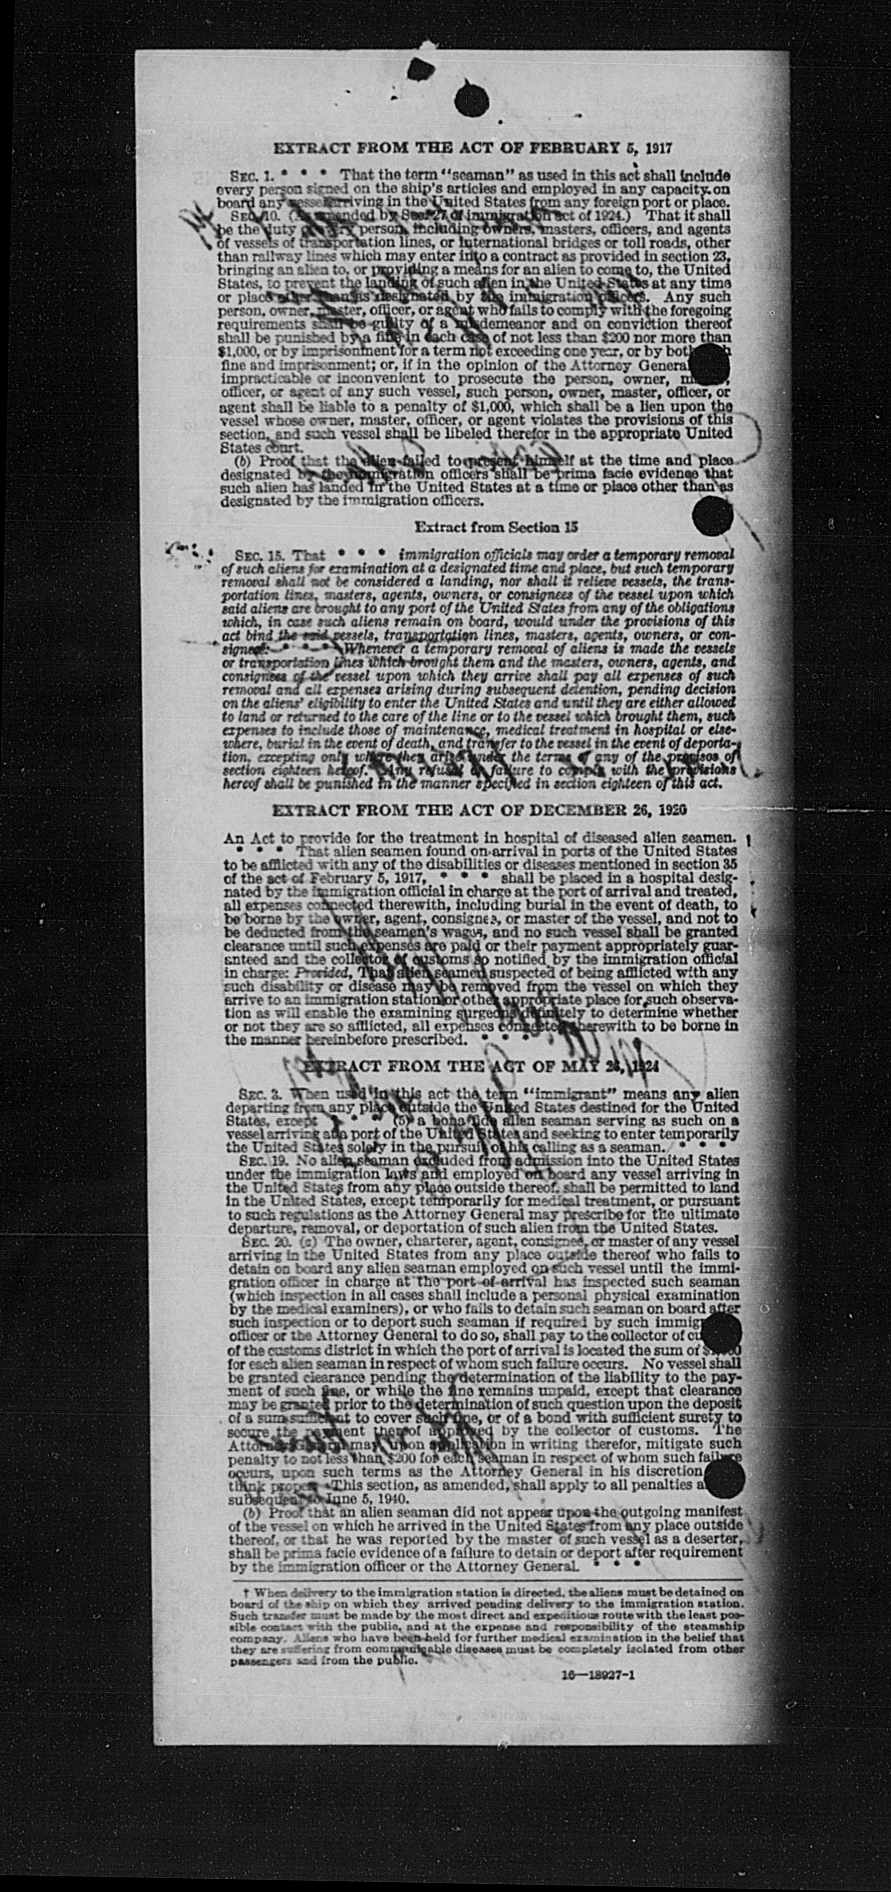 EXTRACT FROM THE ACT OF FEBRUARY 5, 1917
SEC. 1. * * * That the term "seaman" as used in this act shall include
every person signed on the ship's articles and employed in any capacity on
board any vessel arriving in the United States from any foreign port or place.
SEC. 10. (As amended by Sec. 27 of immigration act of 1924.) That it shall
be the duty of every person, including owners, masters, officers, and agents
of vessels of transportation lines, or international bridges or toll roads, other
than railway lines which may enter into a contract as provided in section 23,
bringing an alien to, or providing a means for an alien to come to, the United
States, to prevent the landing of such alien in the United States at any time
or place other than as designated by the immigration officers. Any such
person, owner, master, officer, or agent who fails to comply with the foregoing
requirements shall be guilty of a misdemeanor and on conviction thereof
shall be punished by a fine in each case of not less than $200 nor more than
$1,000, or by imprisonment for a term not exceeding one year, or by both such
fine and imprisonment; or, if in the opinion of the Attorney General
impracticable or inconvenient to prosecute the person, owner, master,
officer, or agent of any such vessel, such person, owner, master, officer, or
agent shall be liable to a penalty of $1,000, which shall be a lien upon the
vessel whose owner, master, officer, or agent violates the provisions of this
section, and such vessel shall be libeled therefor in the appropriate United
States court.
(b) Proof that the alien failed to present himself at the time and place
designated by the immigration officers shall be prima facie evidence that
such alien has landed in the United States at a time or place other than as
designated by the immigration officers.
Extract from Section 15
SEC. 15. That * * * immigration officials may order a temporary removal
of such aliens for examination at a designated time and place, but such temporary
removal shall not be considered a landing, nor shall it relieve vessels, the trans-
portation lines, masters, agents, owners, or consignees of the vessel upon which
said aliens are brought to any port of the United States from any of the obligations
which, in case such aliens remain on board, would under the provisions of this
act bind the said vessels, transportation lines, masters, agents, owners, or con-
signees: * * * Whenever a temporary removal of aliens is made the vessels
or transportation lines which brought them and the masters, owners, agents, and
consignees of the vessel upon which they arrive shall pay all expenses of such
removal and all expenses arising during subsequent detention, pending decision
on the aliens' eligibility to enter the United States and until they are either allowed
to land or returned to the care of the line or to the vessel which brought them, such
expenses to include those of maintenance, medical treatment in hospital or else-
where, burial in the event of death, and transfer to the vessel in the event of deporta-
tion, excepting only where they arise under the terms of any of the provisos of
section eighteen hereof. Any refusal or failure to comply with the provisions
hereof shall be punished in the manner specified in section eighteen of this act.
EXTRACT FROM THE ACT OF DECEMBER 26, 1920
An Act to provide for the treatment in hospital of diseased alien seamen.
* * * That alien seamen found on arrival in ports of the United States
to be afflicted with any of the disabilities or diseases mentioned in section 35
of the act of February 5, 1917, * * * shall be placed in a hospital desig-
nated by the immigration official in charge at the port of arrival and treated,
all expenses connected therewith, including burial in the event of death, to
be borne by the owner, agent, consignee, or master of the vessel, and not to
be deducted from the seamen's wages, and no such vessel shall be granted
clearance until such expenses are paid or their payment appropriately guar-
anteed and the collector of customs so notified by the immigration official
in charge: Provided, That alien seamen suspected of being afflicted with any
such disability or disease may be removed from the vessel on which they
arrive to an immigration station or other appropriate place for such observa-
tion as will enable the examining surgeons definitely to determine whether
or not they are so afflicted, all expenses connected therewith to be borne in
the manner hereinbefore prescribed. * * *
EXTRACT FROM THE ACT OF MAY 26, 1924
SEC. 3. When used in this act the term "immigrant" means any alien
departing from any place outside the United States destined for the United
States, except * * * (5) a bona fide alien seaman serving as such on a
vessel arriving at a port of the United States and seeking to enter temporarily
the United States solely in the pursuit of his calling as a seaman. * * *
SEC. 19. No alien seaman excluded from admission into the United States
under the immigration laws and employed on board any vessel arriving in
the United States from any place outside thereof, shall be permitted to land
in the United States, except temporarily for medical treatment, or pursuant
to such regulations as the Attorney General may prescribe for the ultimate
departure, removal, or deportation of such alien from the United States.
SEC. 20. (a) The owner, charterer, agent, consignee, or master of any vessel
arriving in the United States from any place outside thereof who fails to
detain on board any alien seaman employed on such vessel until the immi-
gration officer in charge at the port of arrival has inspected such seaman
(which inspection in all cases shall include a personal physical examination
by the medical examiners), or who fails to detain such seaman on board after
such inspection or to deport such seaman if required by such immig
officer or the Attorney General to do so, shall pay to the collector of cu
of the customs district in which the port of arrival is located the sum of $1,000
for each alien seaman in respect of whom such failure occurs. No vessel shall
be granted clearance pending the determination of the liability to the pay-
ment of such fine, or while the fine remains unpaid, except that clearance
may be granted prior to the determination of such question upon the deposit
of a sum sufficient to cover such fine, or of a bond with sufficient surety to
secure the payment thereof approved by the collector of customs. The
Attorney General may, upon application in writing therefor, mitigate such
penalty to not less than $200 for each seaman in respect of whom such failure
occurs, upon such terms as the Attorney General in his discretion
think proper. This section, as amended, shall apply to all penalties a
subsequent to June 5, 1940.
(b) Proof that an alien seaman did not appear upon the outgoing manifest
of the vessel on which he arrived in the United States from any place outside
thereof, or that he was reported by the master of such vessel as a deserter,
shall be prima facie evidence of a failure to detain or deport after requirement
by the immigration officer or the Attorney General. * * *
† When delivery to the immigration station is directed, the aliens must be detained on
board of the ship on which they arrived pending delivery to the immigration station.
Such transfer must be made by the most direct and expeditious route with the least pos-
sible contact with the public, and at the expense and responsibility of the steamship
company. Aliens who have been held for further medical examination in the belief that
they are suffering from communicable diseases must be completely isolated from other
passengers and from the public.
16—18927-1